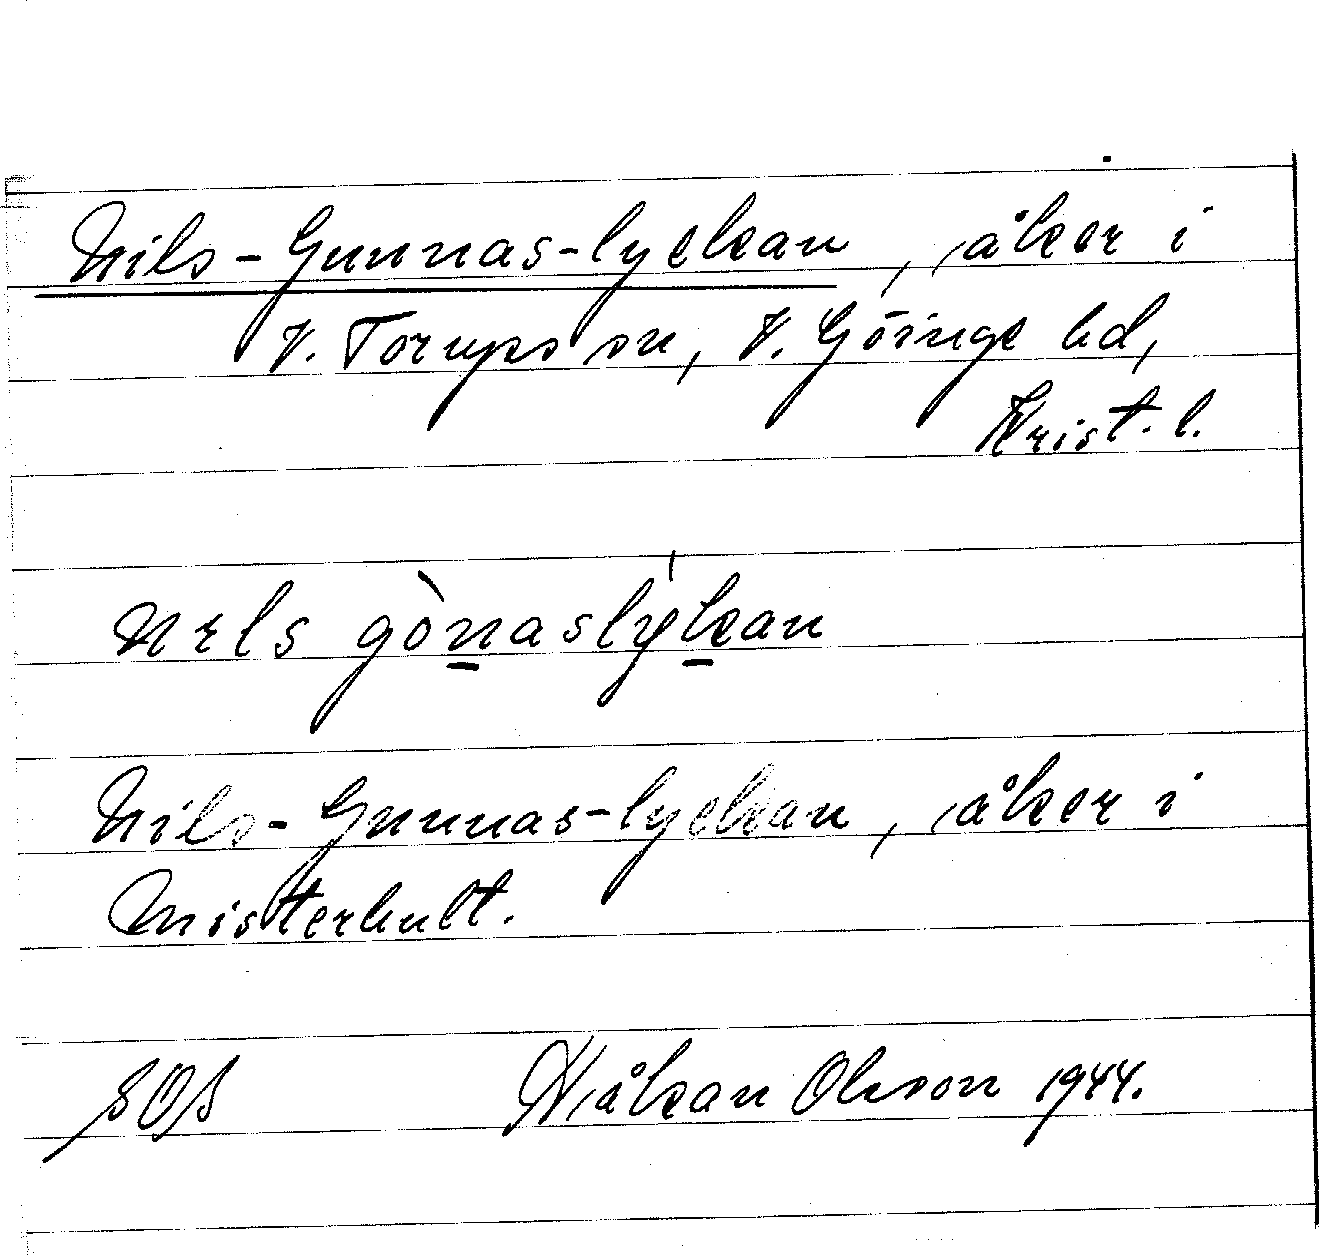 Nils-Gunnas-lyckan, åker i
V. Torups sn, V. Göinge hd,
Krist. l.
nɪls gònaslýkan
Nils-Gunnas-lyckan, åker i
Misterhult.
SOS Håkan Olsson 1944.